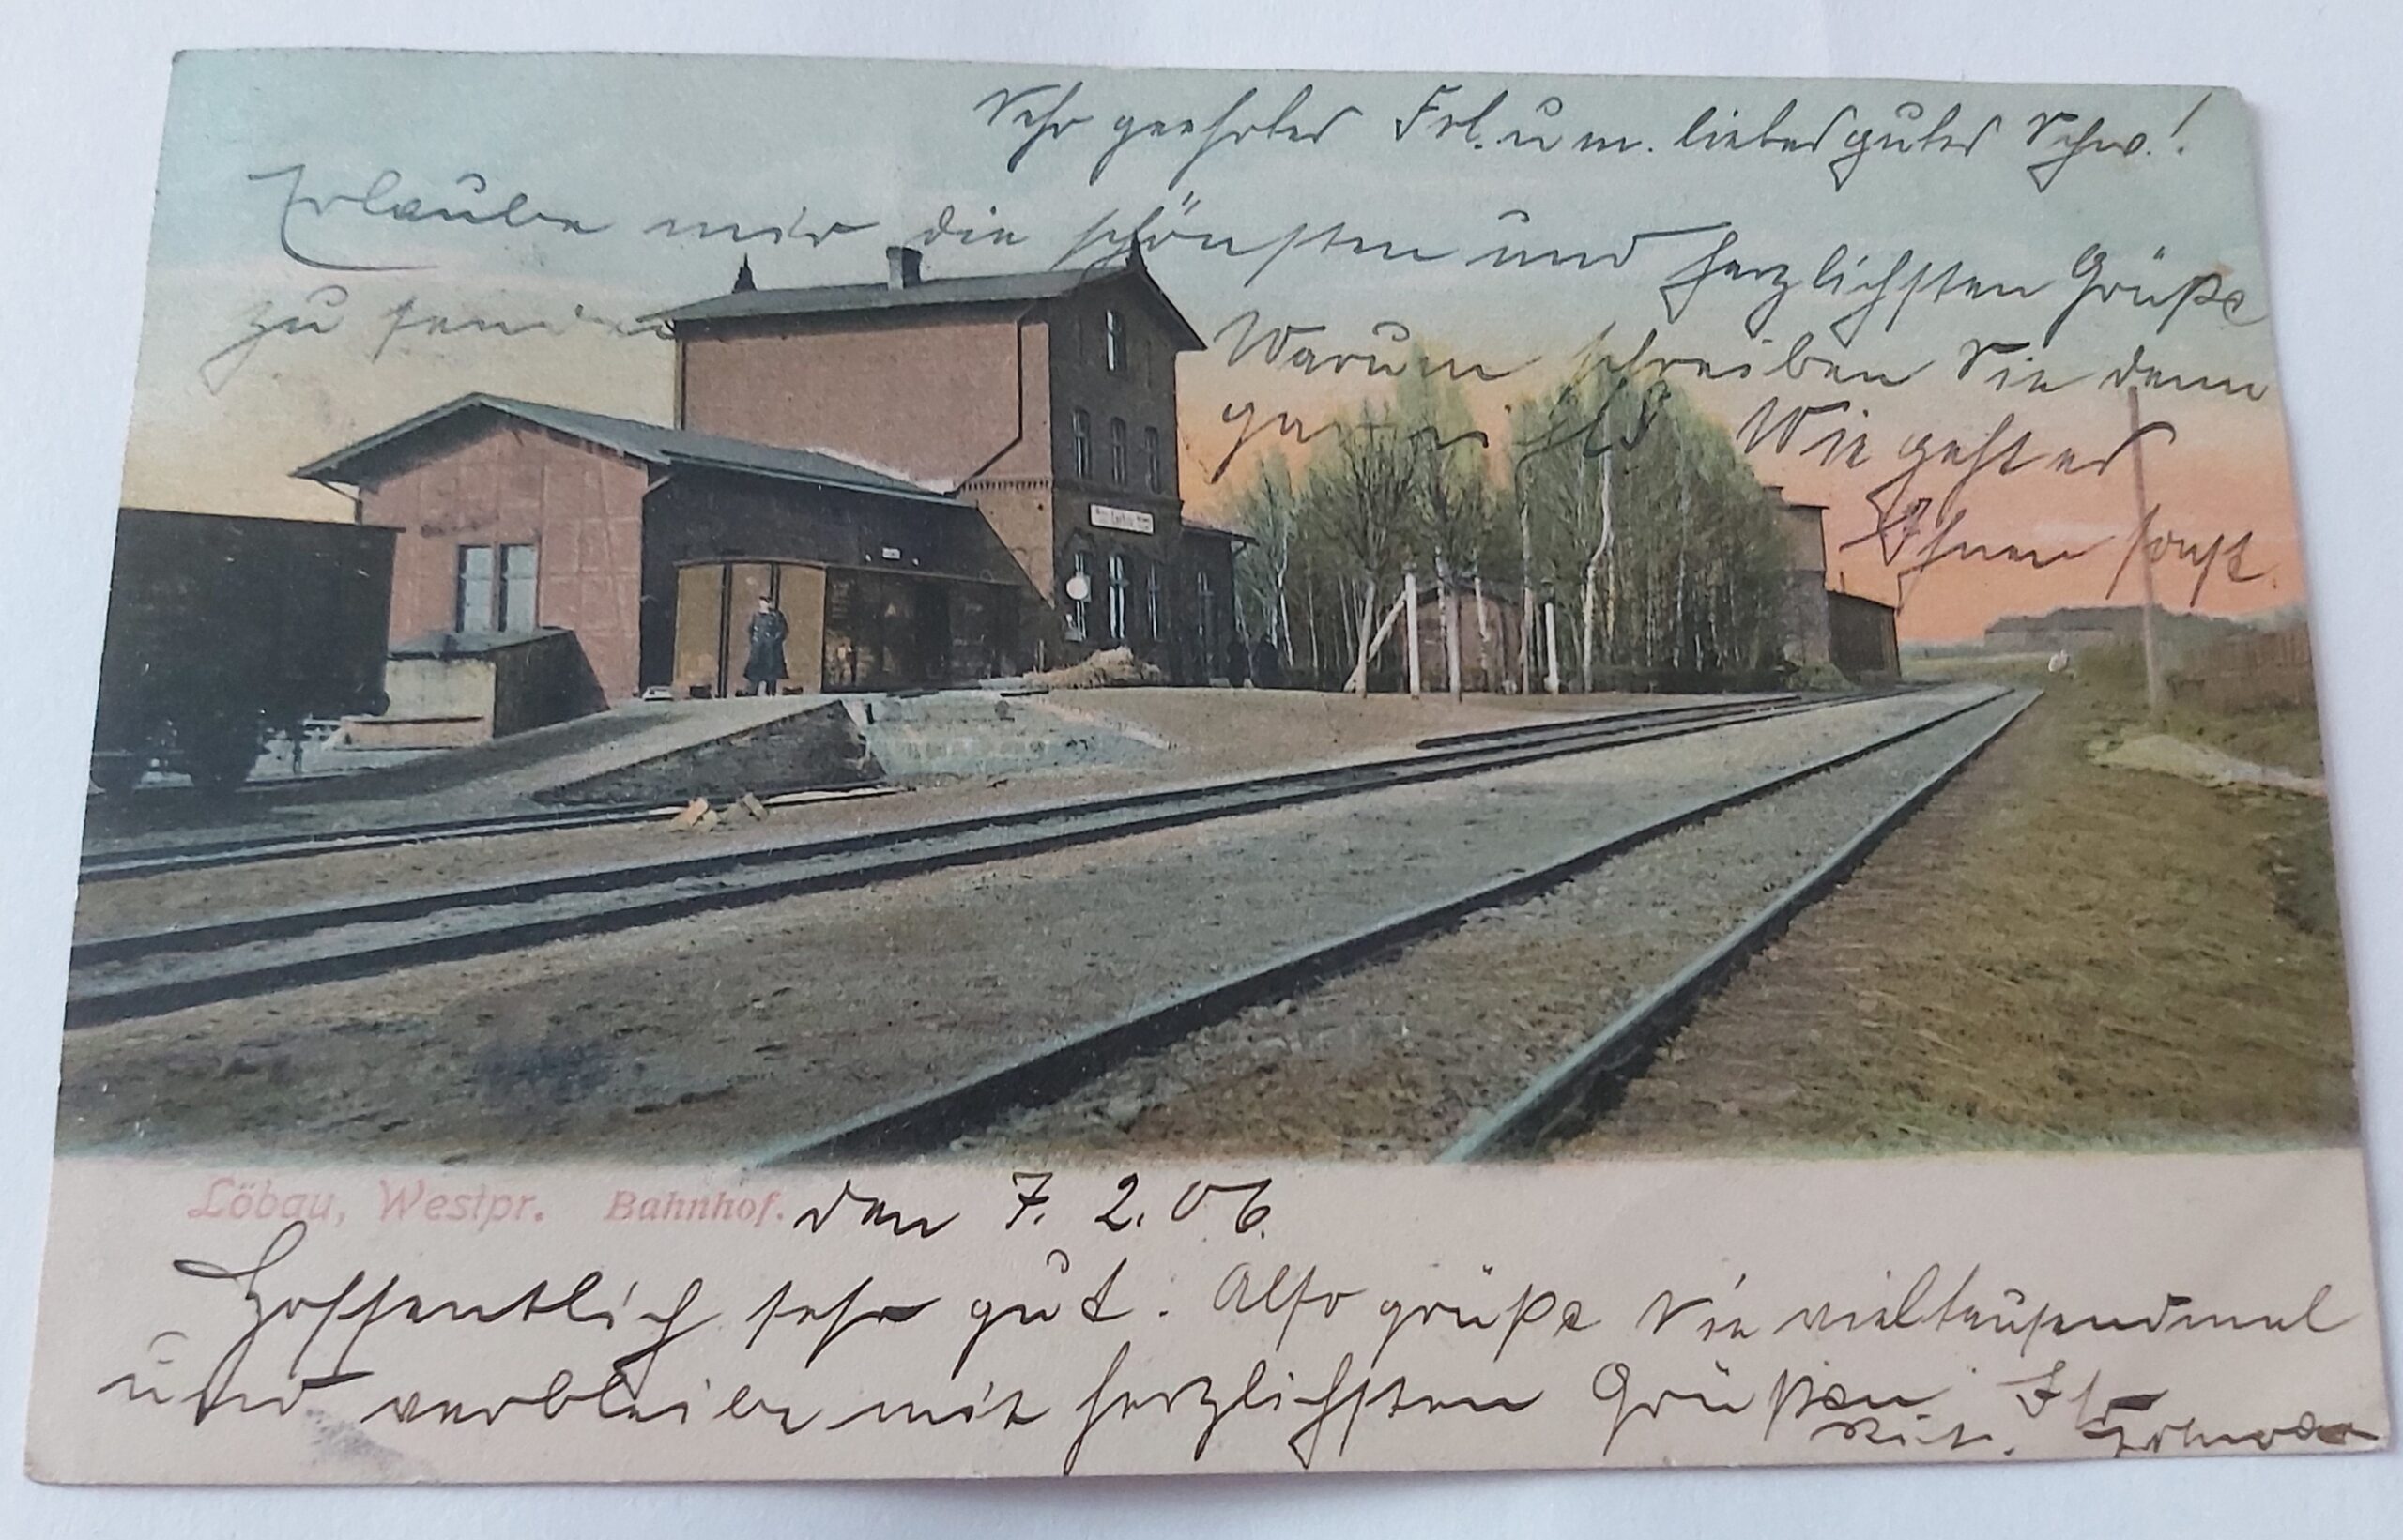 Sehr geehrtes Frl. u m. liebes gutes Schw.!
Erlaube mir die schönsten und herzlichsten Grüße
zu senden
Warum schreiben Sie denn
gar nichts Wie geht es
Ihnen sonst.
Löbau, Westpr. Bahnhof. den 7. 2. 06.
Hoffentlich sehr gut. Also grüße Sie vieltausendmal
und verbleibe mit herzlichsten Grüßen Ihr